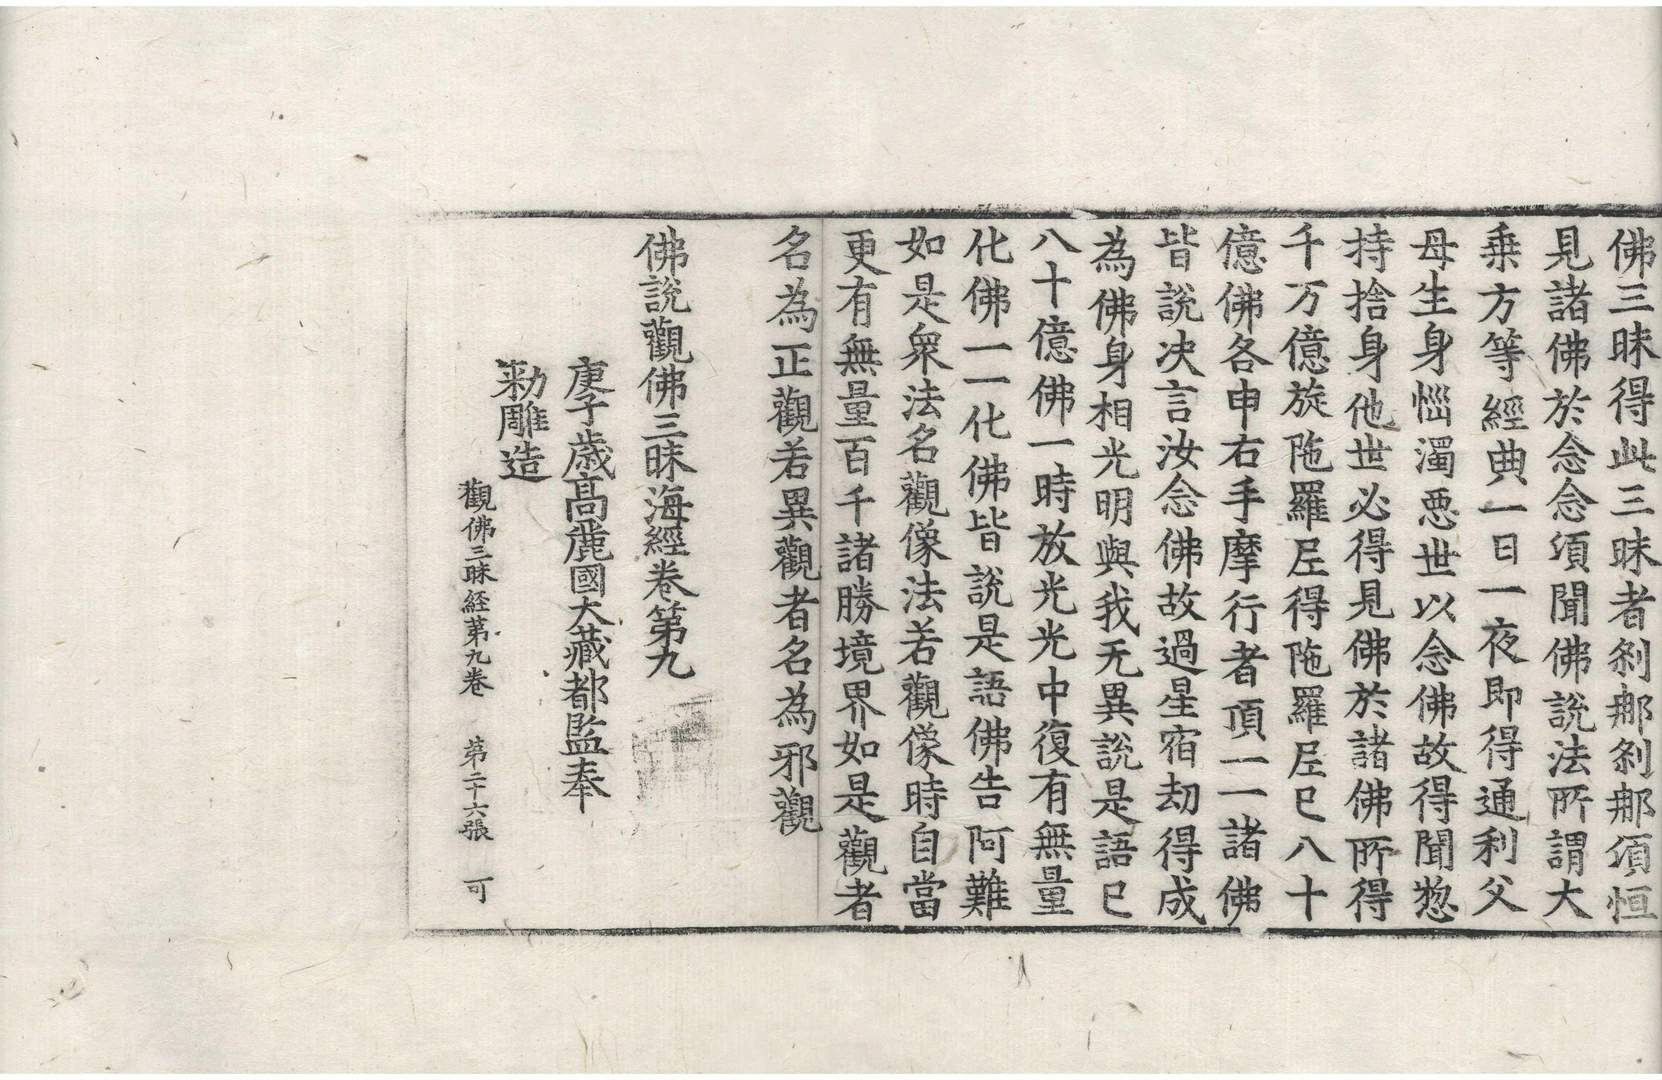 佛三昧得此三昧者刹那刹那須恒
見諸佛於念念須聞佛說法所謂大
乗方等經典一日一夜即得通利父
母生身惱濁悪世以念佛故得聞惣
持捨身他世必得見佛於諸佛所得
千万億旋陁羅尼得陁羅尼已八十
億佛各申右手摩行者頂一一諸佛
皆說决言汝念佛故過星宿劫得成
為佛身相光明與我无異說是語已
八十億佛一時放光光中復有無量
化佛一一化佛皆說是語佛告阿難
如是衆法名觀像法若觀像時自當
更有無量百千諸勝境界如是觀者
名為正觀若異觀者名為邪觀
佛說觀佛三昧海經卷第九
庚子歳高麗國大藏都監奉
勑雕造
觀佛三昧経第九卷　第二十六張　可